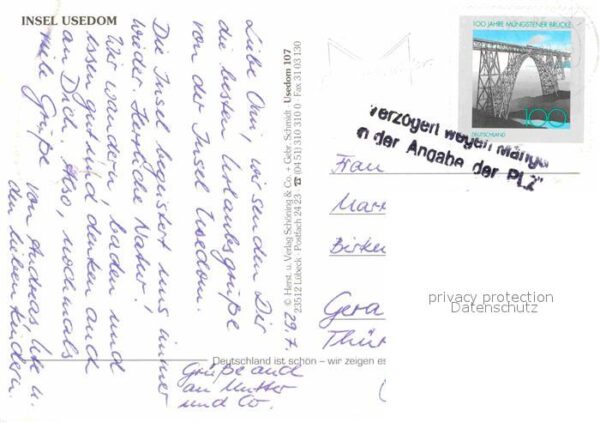 INSEL USEDOM
Liebe Omi, wir senden Dir
die besten Urlaubsgrüße
von der Insel Usedom.
Die Insel begeistert uns immer
wieder. Herrliche Natur!
Wir wandern, baden und
essen gut und denken auch
an Dich. Also, nochmals
viele Grüße von Andreas, Ute u.
den lieben Kindern.
29.7.
Grüße auch
an Mutter
und Co.
© Herst. u. Verlag Schöning & Co. + Gebr. Schmidt · Usedom 107
23512 Lübeck · Postfach 24 23 ☎ (04 51) 310 310 0 · Fax 31 03 130
Deutschland ist schön – wir zeigen es
100 JAHRE MÜNGSTENER BRÜCKE
100
DEUTSCHLAND
Verzögert wegen Mänge
in der Angabe der PLZ"
Frau
Mar
Birke
Gera
Thür
privacy protection
Datenschutz